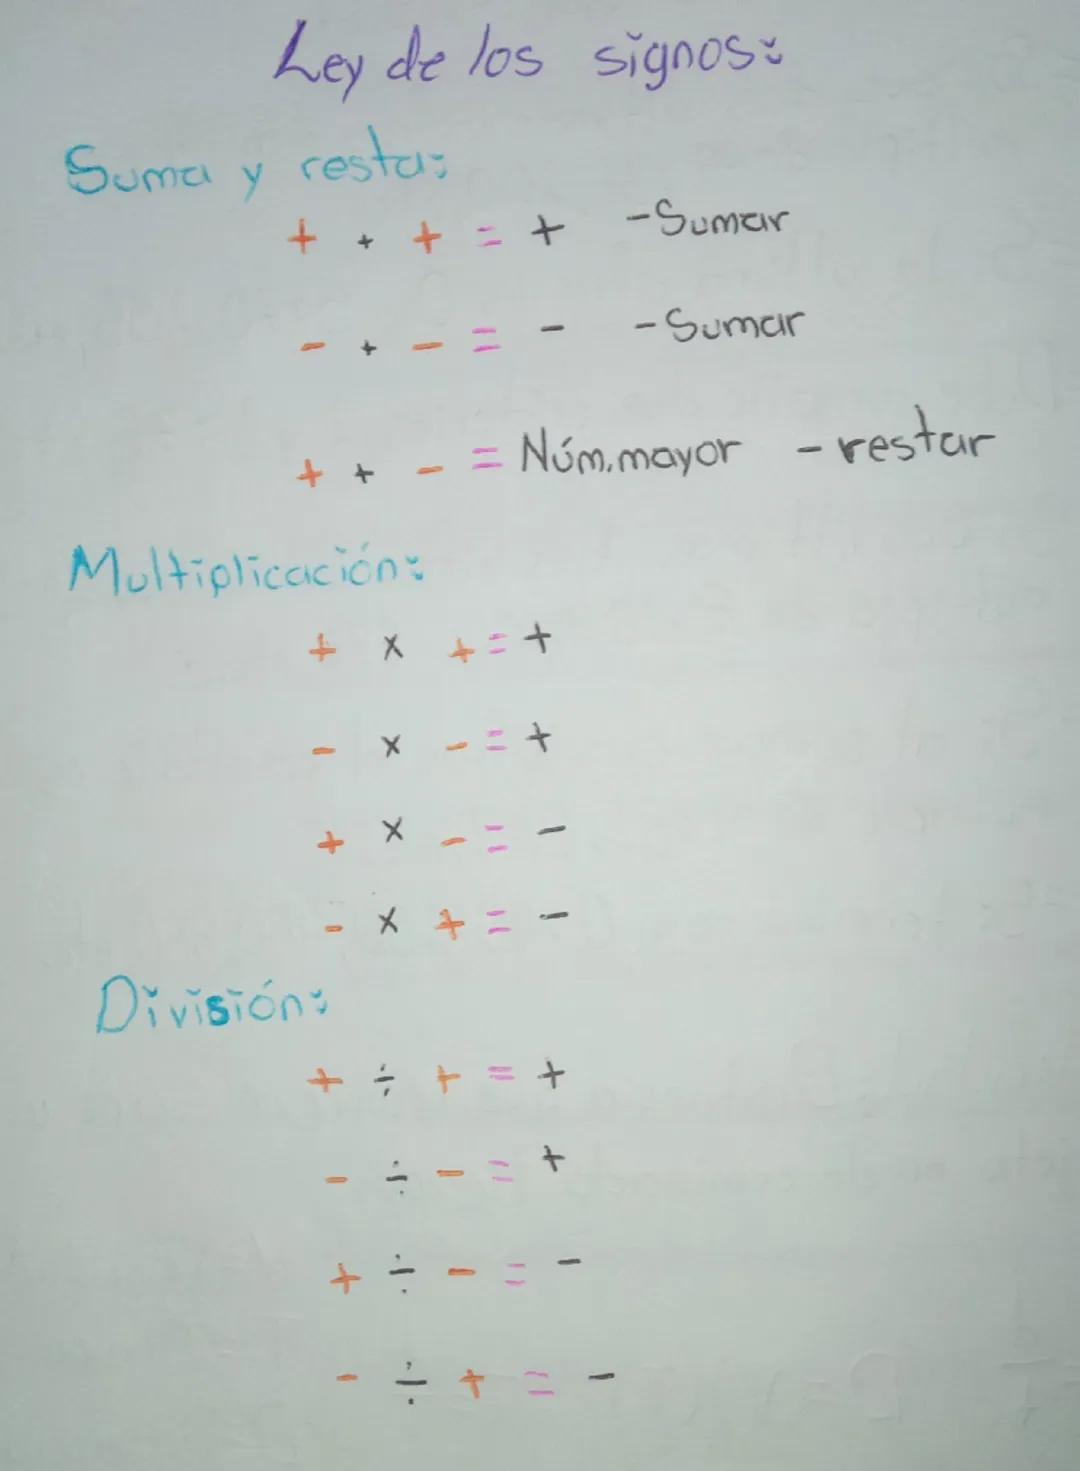 Ley de los signos:
Suma y resta:
+ + + = + - Sumar
- + - = - - Sumar
+ + - = Núm. mayor - restar
Multiplicación:
+ x + = +
- x - = +
+ x - = -
- x + = -
División:
+ ÷ + = +
- ÷ - = +
+ ÷ - = -
- ÷ + = -